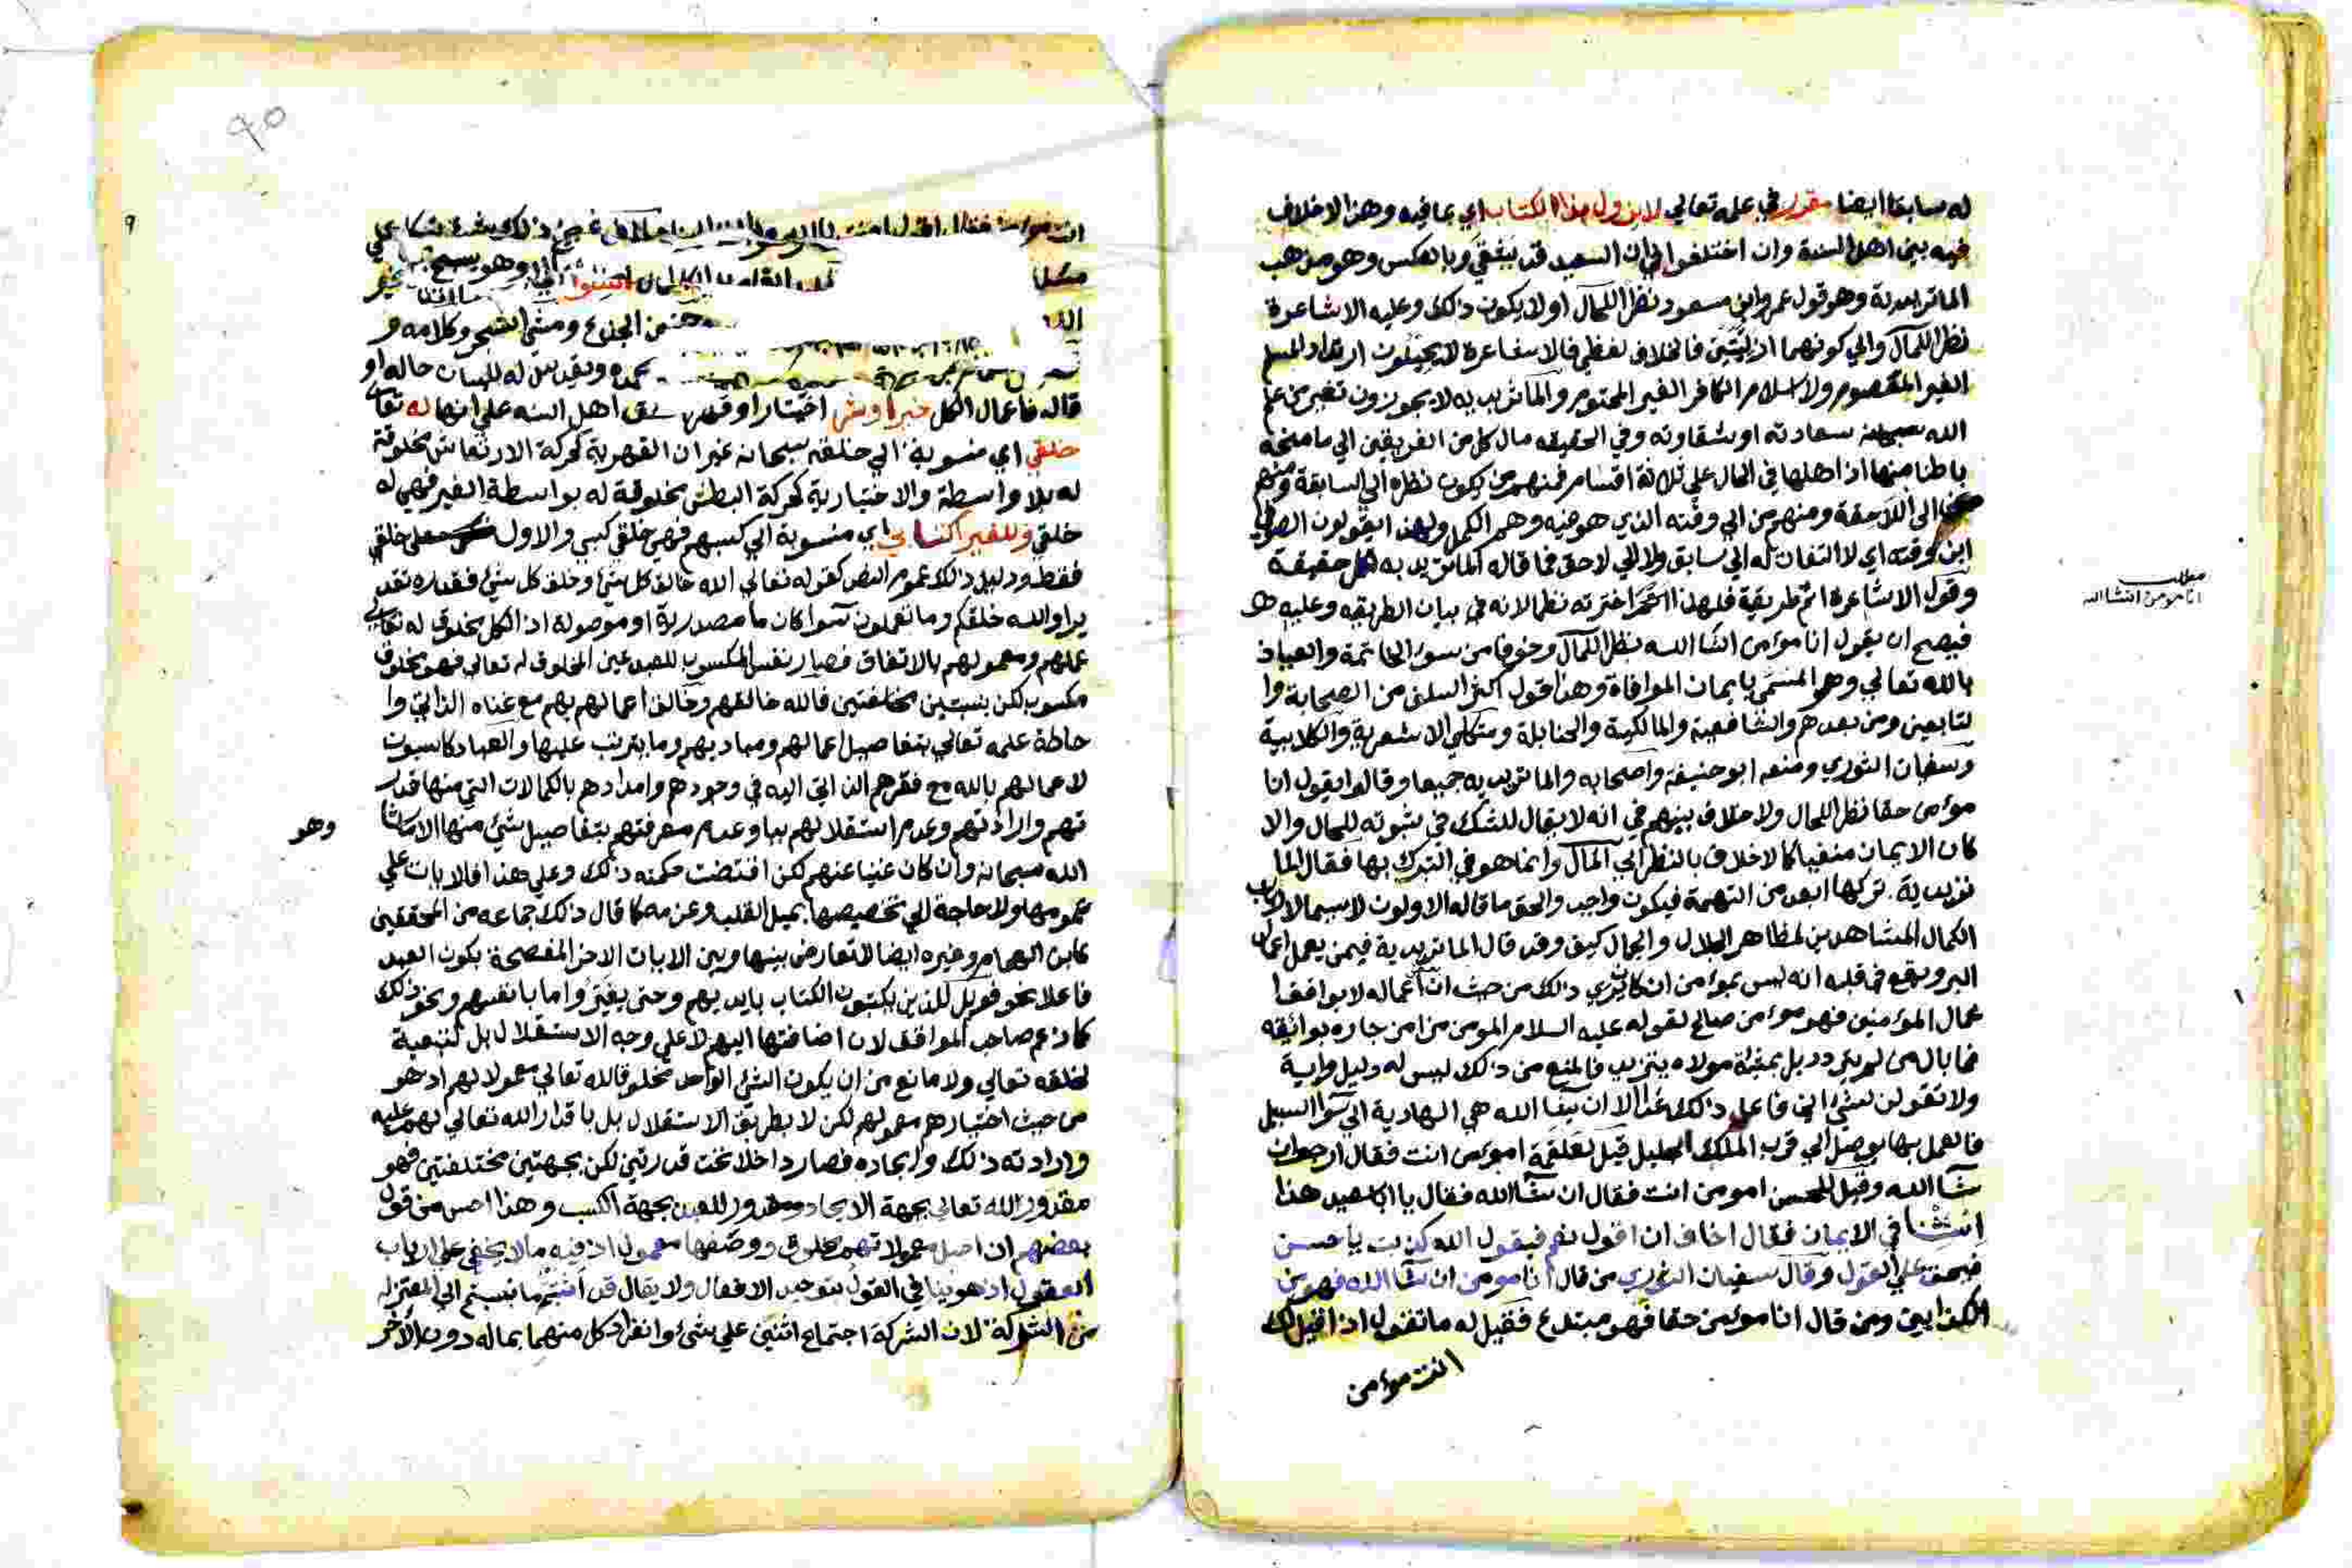 له سابقا ايضا مقرر في علمه تعالي لا يزول هذا الكتاب اي بما فيه وهذا لاخلاف
فيه بين اهل السنة وان اختلفوا الي ان السعيد قد يشقي وبالعكس وهو مذهب
الماتريدية وهو قول عمر وابن مسعود نظرا للحال او لا يكون ذلك وعليه الاشاعرة
نظرا للمآل والي كونهما ازليتين فالخلاف لفظي فالاشاعرة لا يحيلون ارتداد المسلم
الغير المعصوم ولا اسلام الكافر الغير المحتوم والماتريديه لا يجوزون تغير من علم
الله سبحانه سعادته او شقاوته وفي الحقيقه مال كل من الفريقين الي ما منحه
باطنا منها اذ اهلها في الحال علي ثلاثة اقسام فمنهم من يكون نظره الي السابقة ومنهم
الي اللاحقة ومنهم من الي وقته الذي هو فيه وهم الكمل ولهذا يقولون الصوفي
ابن وقته اي لا التفات له الي سابق ولا الي لاحق فما قاله الماتريديه حقيقة
وقول الاشاعرة اتم طريقة فلهذا اخترته نظما لانه في بيان الطريقه وعليه
فيصح ان يقول انا مؤمن انشا الله بنظر المآل وخوفا من سوء الخاتمة والعياذ
بالله تعالي وهو المسمي بايمان الموافاة وهذا قول اكثر السلف من الصحابة وا
لتابعين ومن بعدهم والشافعية والمالكية والحنابلة ومتكلمي الاشعرية والكلابية
وسفيان الثوري ومنعه ابو حنيفة واصحابه والماتريديه جميعا وقالوا يقول انا
مؤمن حقا نظرا للحال ولا خلاف بينهم في انه لا يقال للشك في ثبوته للحال والا
كان الايمان منفيا كما لا خلاف بالنظر الي المآل وانما هو في التبرك بها فقال الما
تريدية تركها ابعد من التهمة فيكون واجب والحق ما قاله الاولون لا سيما لارباب
الكمال المشاهدين لمظاهر الجلال والجمال كيف وقد قال الماتريدية فيمن يعمل اعمال
البر ويقع في قلبه انه ليس بمؤمن ان كان يري ذلك من حيث ان اعماله لا يوافق ا
عمال المؤمنين فهو مؤمن صالح لقوله عليه السلام المومن من امن جاره بوائقه
فما بال من لم يتردد بل بمشيئة مولاه يتزيد فالمنع من ذلك ليس له دليل واية
ولا تقولن لشئ اني فاعل ذلك غدا الا ان يشا الله هي الهادية الي سوا السبيل
فالعمل بها يوصل الي قرب الملك الجليل قيل لعلقمة امؤمن انت فقال ارجو ان
شاء الله وقيل للحسن امومن انت فقال ان شاء الله فقال يا ابا سعيد هذا
استثنا في الايمان فقال اخاف ان اقول نعم فيقول الله كذبت يا حسن
فيحق علي القول وقال سفيان الثوري من قال انا مومن ان شا الله فهو من
الكذابين ومن قال انا مؤمن حقا فهو مبتدع فقيل له ما تقول اذا قيل لك
انت مؤمن
مطلب
انا مومن انشا الله
٩٥
٩
خلقي اي منسوبة الي خلقه سبحانه غير ان القهرية كحركة الارتعاش مخلوقة
له بلا واسطة والاختيارية كحركة البطش مخلوقة له بواسطة الغير فهي له
خلقي وللغير اكتسابي اي منسوبة الي كسبهم فهي خلقي كسبي والاول خلقي
فقط ودليل ذلك عموم النص كقوله تعالي الله خالق كل شئ وخلق كل شئ فقدره تقد
يرا والله خلقكم وما تعملون سوا كان ما مصدرية او موصولة اذ الكل مخلوق له تعالي
علمهم ومعمولهم بالاتفاق فصار نفس المكسوب للعبد عين المخلوق له تعالي فهو مخلوق
مكسوب لكن بنسبتين مختلفتين فالله خالقهم وخالق اعمالهم بهم مع غناه الذاتي وا
حاطة علمه تعالي بتفاصيل اعمالهم ومباديهم وما يترتب عليها والعباد كاسبون
لاعمالهم بالله مع فقرهم الذاتي اليه في وجودهم وامدادهم بالكمالات التي منها قدر
تهم وارادتهم وعدم استقلالهم بها وعدم معرفتهم بتفاصيل شئ منها الا ما شا
وهو
الله سبحانه وان كان غنيا عنهم لكن اقتضت حكمته ذلك وعلي هذا فالايات علي
عمومها ولا حاجة الي تخصيصها بميل القلب وعزمه كما قال ذلك جماعه من المحققين
كابن الهمام وغيره ايضا لا تعارض بينها وبين الايات الاخر المفصحة بكون العبد
فاعلا نحو فويل للذين يكتبون الكتاب بايديهم وحتي يغيروا ما بانفسهم ونحو ذلك
كما زعم صاحب المواقف لان اضافتها اليهم لا علي وجه الاستقلال بل لتبعية
لخلقه تعالي ولا مانع من ان يكون الشئ الواحد مخلوقا لله تعالي معمولا لهم اذ هو
من حيث اختيارهم معمولهم لكن لا بطريق الاستقلال بل باقدار الله تعالي لهم عليه
وارادته ذلك وايجاده فصار داخلا تحت قدرتين لكن بجهتين مختلفتين فهو
مقدور الله تعالي بجهة الايجاد ومقدور للعبد بجهة الكسب وهذا احسن من قول
بعضهم ان اصل معمولاتهم مخلوق ووصفها معمول اذ فيه ما لا يخفي علي ارباب
العقول اذ هو ينافي القول بتوحيد الافعال ولا يقال قد اثبتم ما نسبتم الي المعتزله
من الشركة لان الشركة اجتماع اثنين علي شئ وانفراد كل منهما بماله دون الاخر